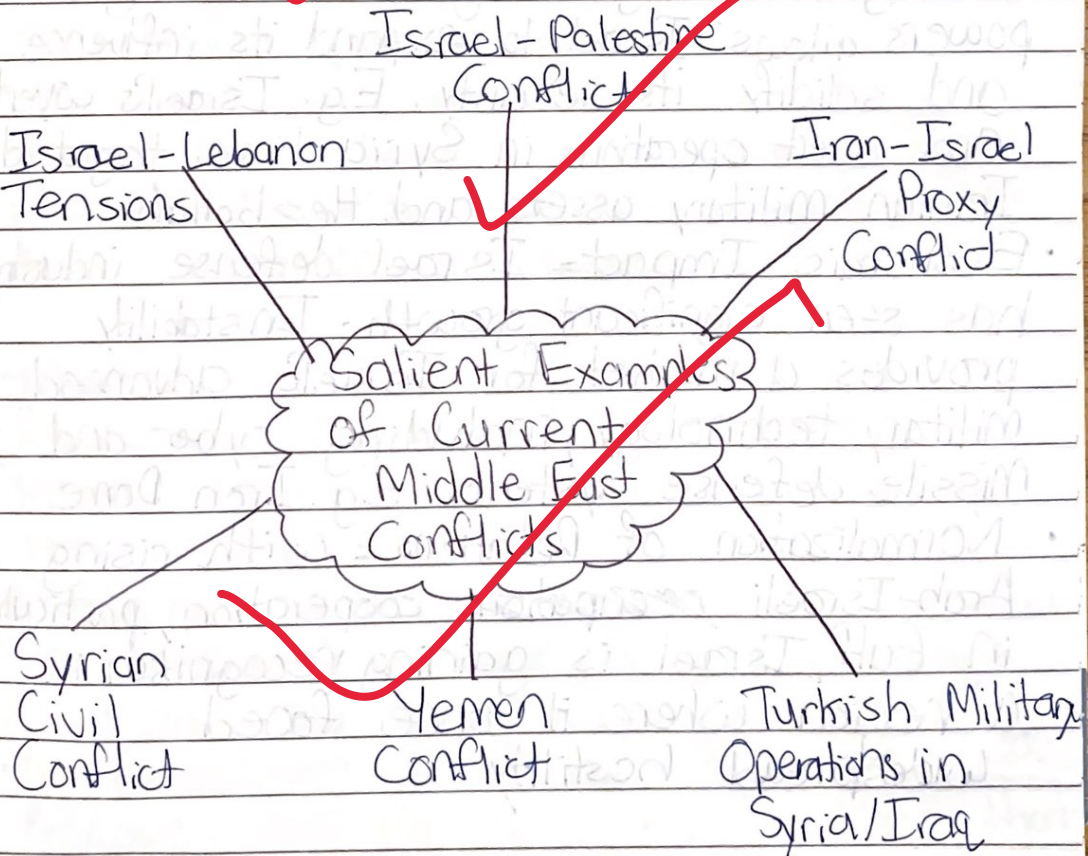 Israel-Palestine
Conflict
Israel-Lebanon
Tensions
Iran-Israel
Proxy
Conflict
Salient Examples
of Current
Middle East
Conflicts
Syrian
Civil
Conflict
Yemen
Conflict
Turkish Military
Operations in
Syria/Iraq